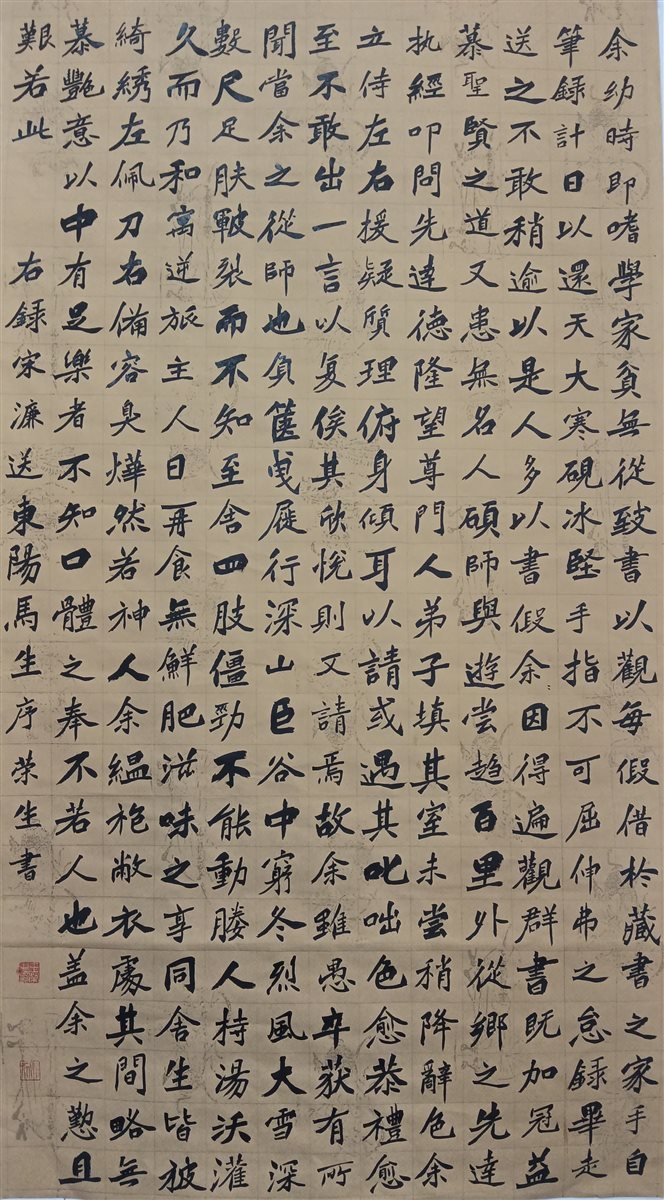 余幼時即嗜學家貧無從致書以觀每假借於藏書之家手自
筆録計日以還天大寒硯冰堅手指不可屈伸弗之怠録畢走
送之不敢稍逾以是人多以書假余因得遍觀群書既加冠益
慕聖賢之道又患無名人碩師與遊嘗趋百里外從鄉之先達
执經叩問先達德隆望尊門人弟子填其室未嘗稍降辭色余
立侍左右援疑質理俯身傾耳以請或遇其叱咄色愈恭禮愈
至不敢出一言以复俟其欣悅則又請焉故余雖愚卒获有所
聞當余之從師也負篋曳屣行深山巨谷中窮冬烈風大雪深
數尺足肤皸裂而不知至舍四肢僵勁不能動媵人持湯沃灌
久而乃和寓逆旅主人日再食無鮮肥滋味之享同舍生皆被
綺绣左佩刀右備容臭燁然若神人余緼袍敝衣處其間略無
慕艷意以中有足樂者不知口體之奉不若人也盖余之懃且
艱若此 右録宋濂送東陽馬生序荣生書